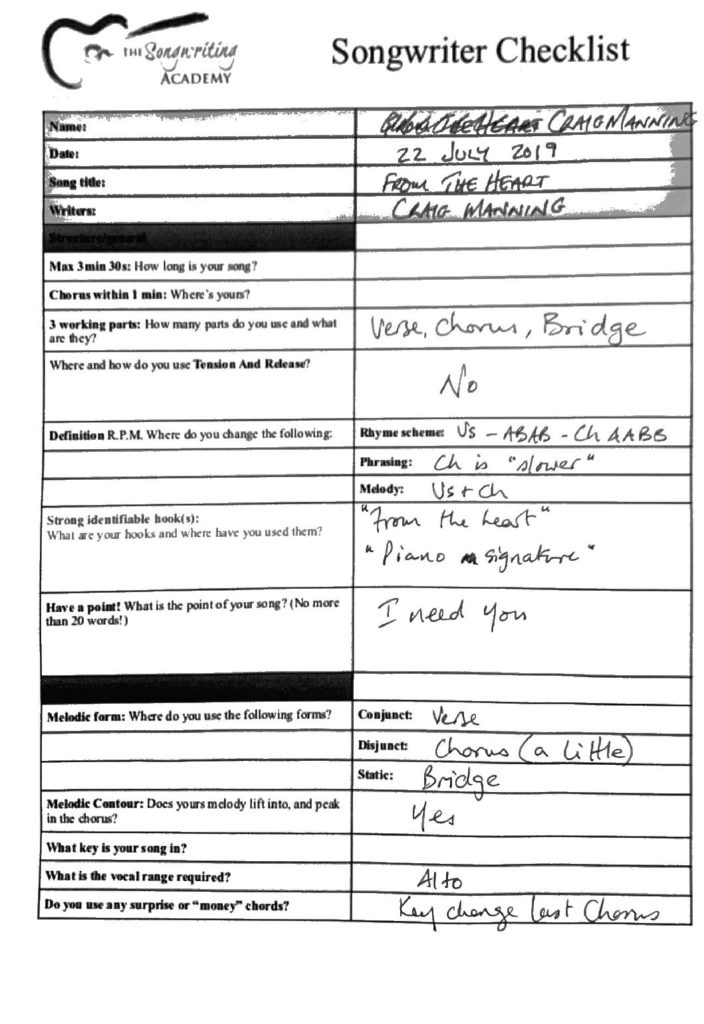 THE Songwriting
ACADEMY
Songwriter Checklist
Name: CRAIG MANNING
Date: 22 JULY 2019
Song title: FROM THE HEART
Writers: CRAIG MANNING
Structure/general
Max 3min 30s: How long is your song?
Chorus within 1 min: Where's yours?
3 working parts: How many parts do you use and what
are they?
Verse, Chorus, Bridge
Where and how do you use Tension And Release?
No
Definition R.P.M. Where do you change the following:
Rhyme scheme: Vs - ABAB - Ch AABB
Phrasing: Ch is "slower"
Melody: Vs + Ch
Strong identifiable hook(s):
What are your hooks and where have you used them?
"From the heart"
"Piano signature"
Have a point! What is the point of your song? (No more
than 20 words!)
I need you
Melodic form: Where do you use the following forms?
Conjunct: Verse
Disjunct: Chorus (a little)
Static: Bridge
Melodic Contour: Does yours melody lift into, and peak
in the chorus?
Yes
What key is your song in?
What is the vocal range required? Alto
Do you use any surprise or “money” chords? Key change last Chorus